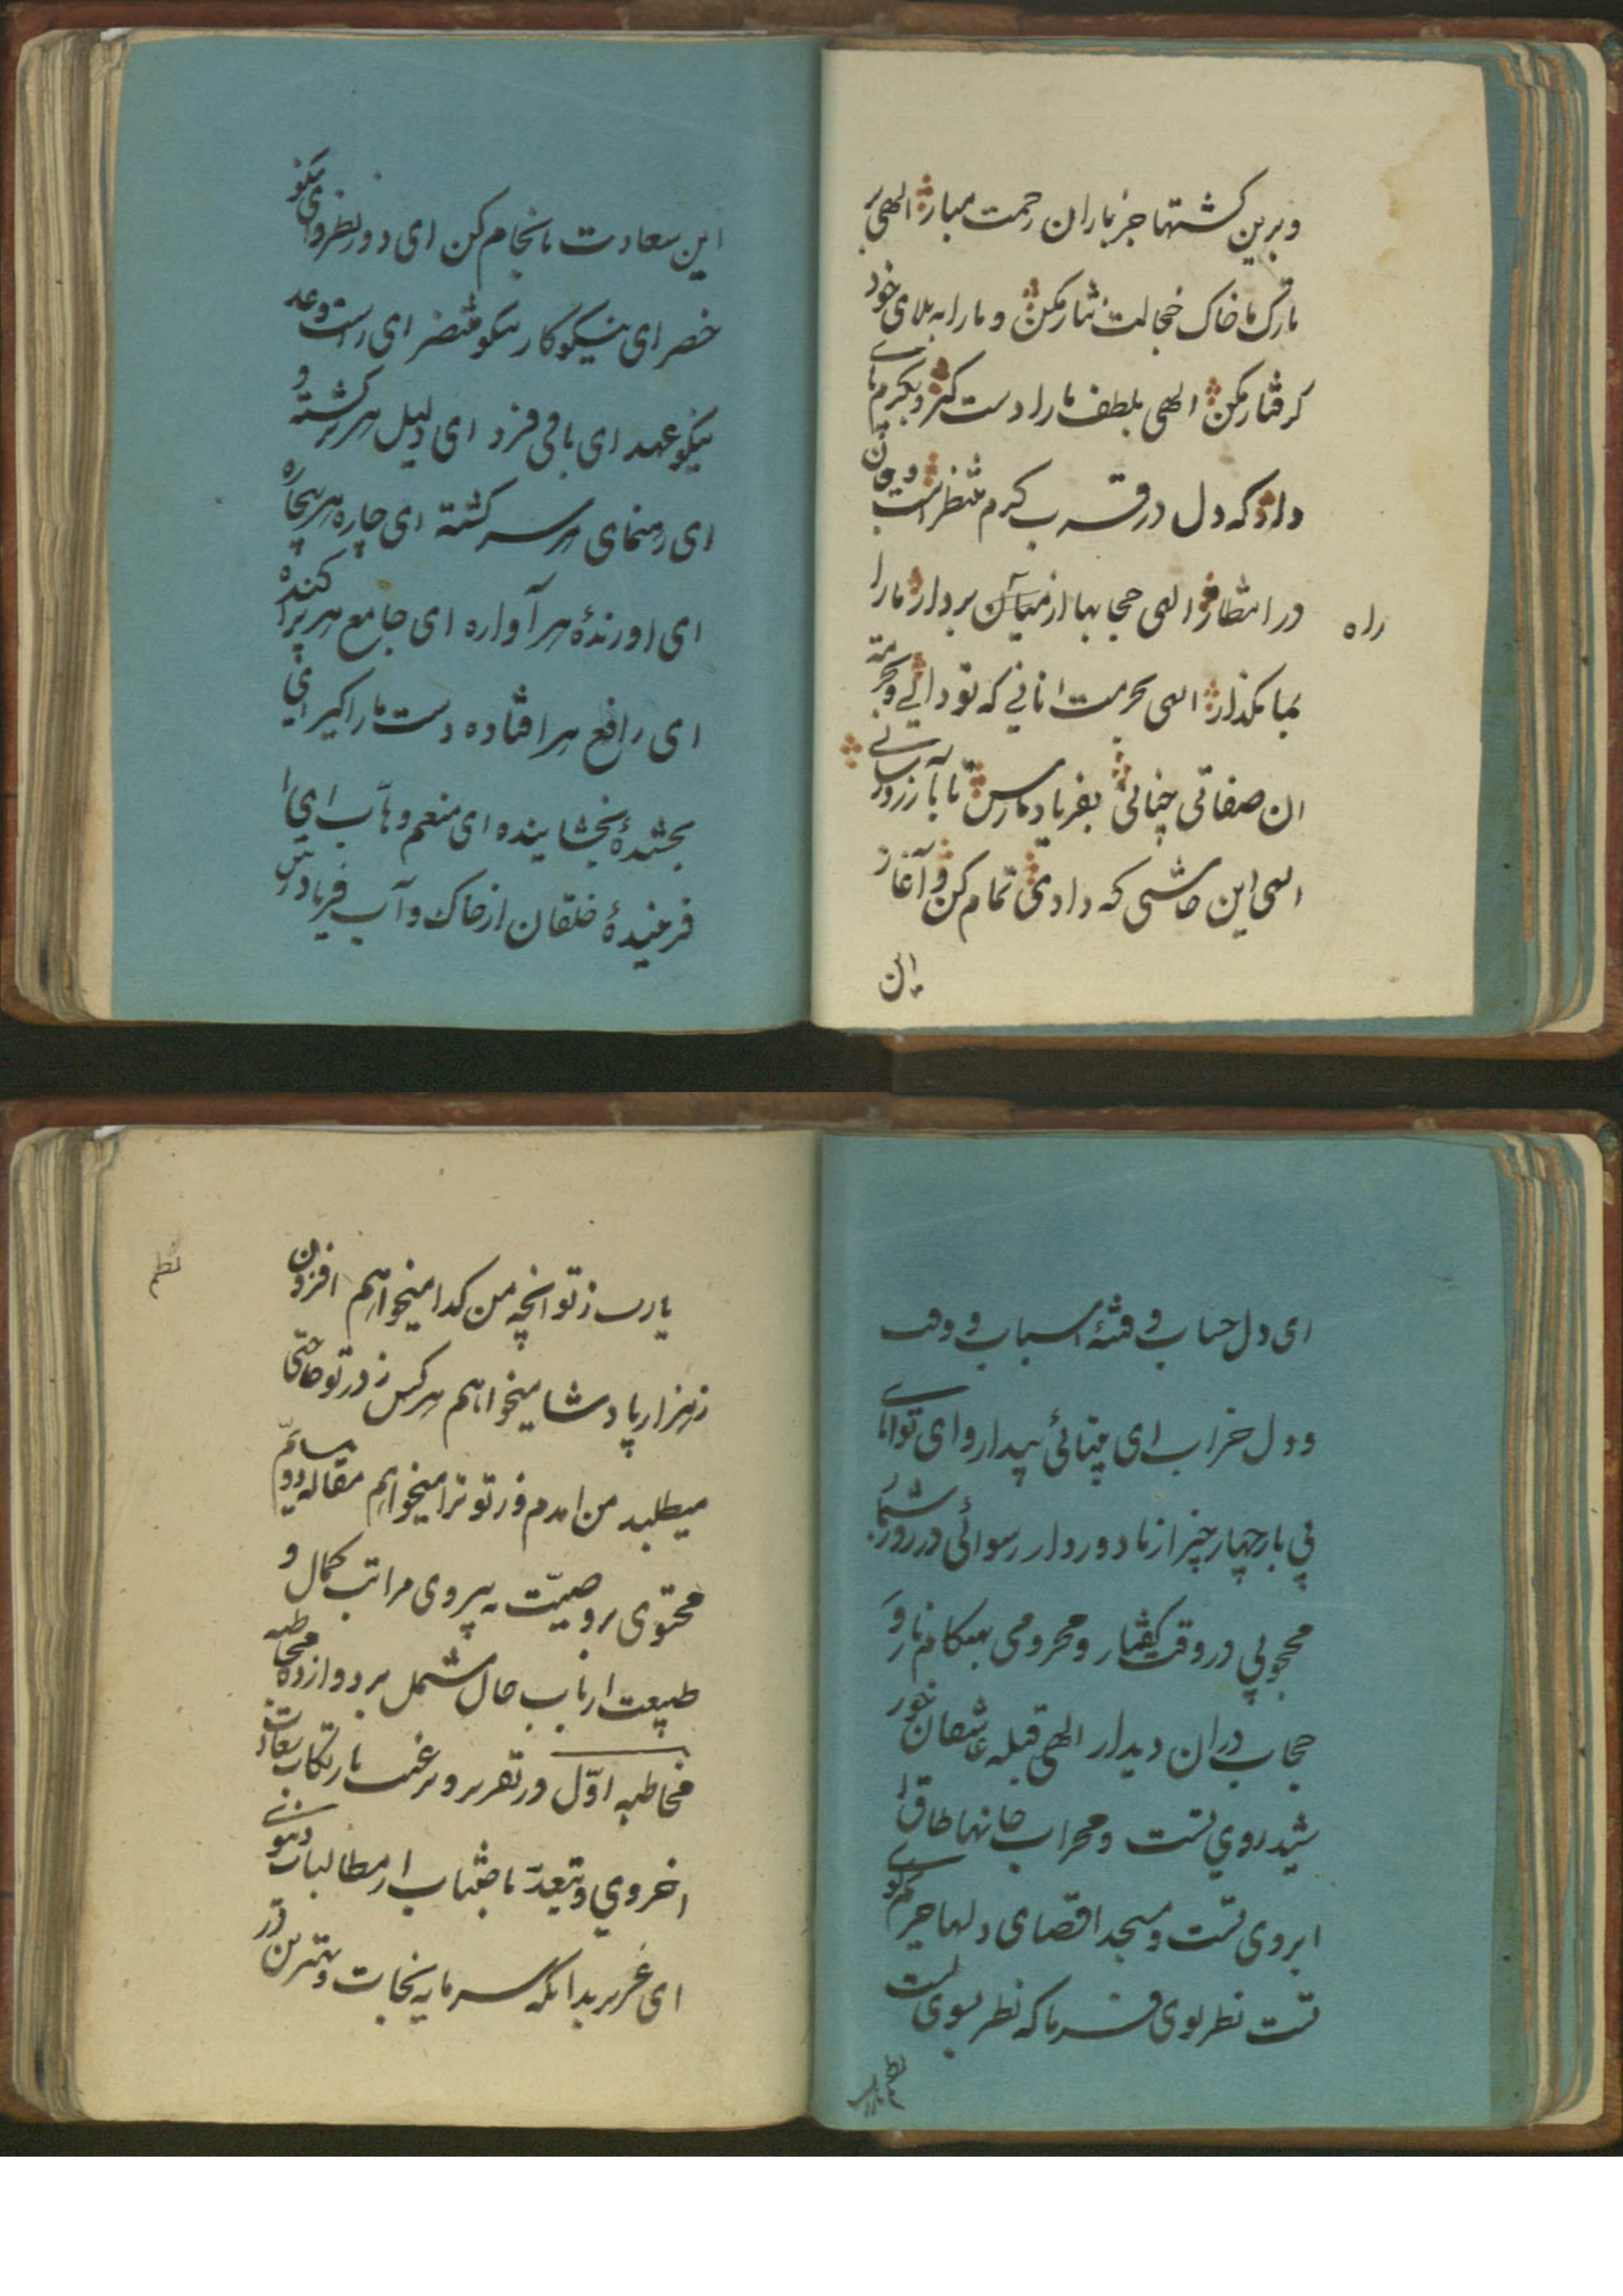 وبرین کشتها جز باران رحمت مبار الهی بر
تارک ما خاک خجالت نثار مکن و ما را به بلای خود
گرفتار مکن الهی بلطف ما را دست گیر و بکرم پای
دار که دل در قرب کرم منتظر است و جان
در انتظار الهی حجابها از میان بردار ما را
راه
بما مگذار الهی بحرمت انانی که تو دانی و بحرمت
ان صفاتی چنانی بفریاد ما رس تا بآرزو رسانی
الهی این چاشنی که دادی تمام کن و آغاز
این
این سعادت بانجام کن ای دور نظر و ای نیکو
خصر ای نیکوکار نیکو منضر ای راست وعد
نیکو عهد ای باقی فرد ای دلیل هر برگشته و
ای رهنمای هر سرگشته ای چاره هر بیچاره
ای اورندهٔ هر آواره ای جامع هر پراکنده
ای رافع هر افتاده دست ما را گیر ای
بخشندهٔ بخشاینده ای منعم وهاب ای
فرخنیدهٔ خلقان از خاک و آب فریادرس
ای دل حساب و فتنهٔ اسباب و وقت
و دل خراب ای بینائی بیدار و ای توانای
بی یار چهار چیز از ما دور دار رسوائی در روز شمار
محجوبی در وقت گفتار و محرومی بهنگام بار و
حجاب دران دیدار الهی قبله عاشقان خور
شید روی تست و محراب جانها طاق
ابروی تست و مسجد اقصای دلها حریم کوی
تست نظر بوی فرما که نظر بسوی تست
نظم
یارب ز تو انچه من گدا میخواهم افزون
ز هزار پادشا میخواهم هر کس ز در تو حاجتی
میطلبد من امدم و ز تو ترا میخواهم مقاله دویم
محتوی بر وصیت به پیروی مراتب کمال و
طبیعت ارباب حال مشتمل بر دوازده مخاطبه
مخاطبه اوّل در تقریر و ترغیب بارتکاب سعادت
اخروی و تبعید باجتناب از مطالبات دنیوی
ای عزیز بدانکه سرمایه نجات و بهترین در